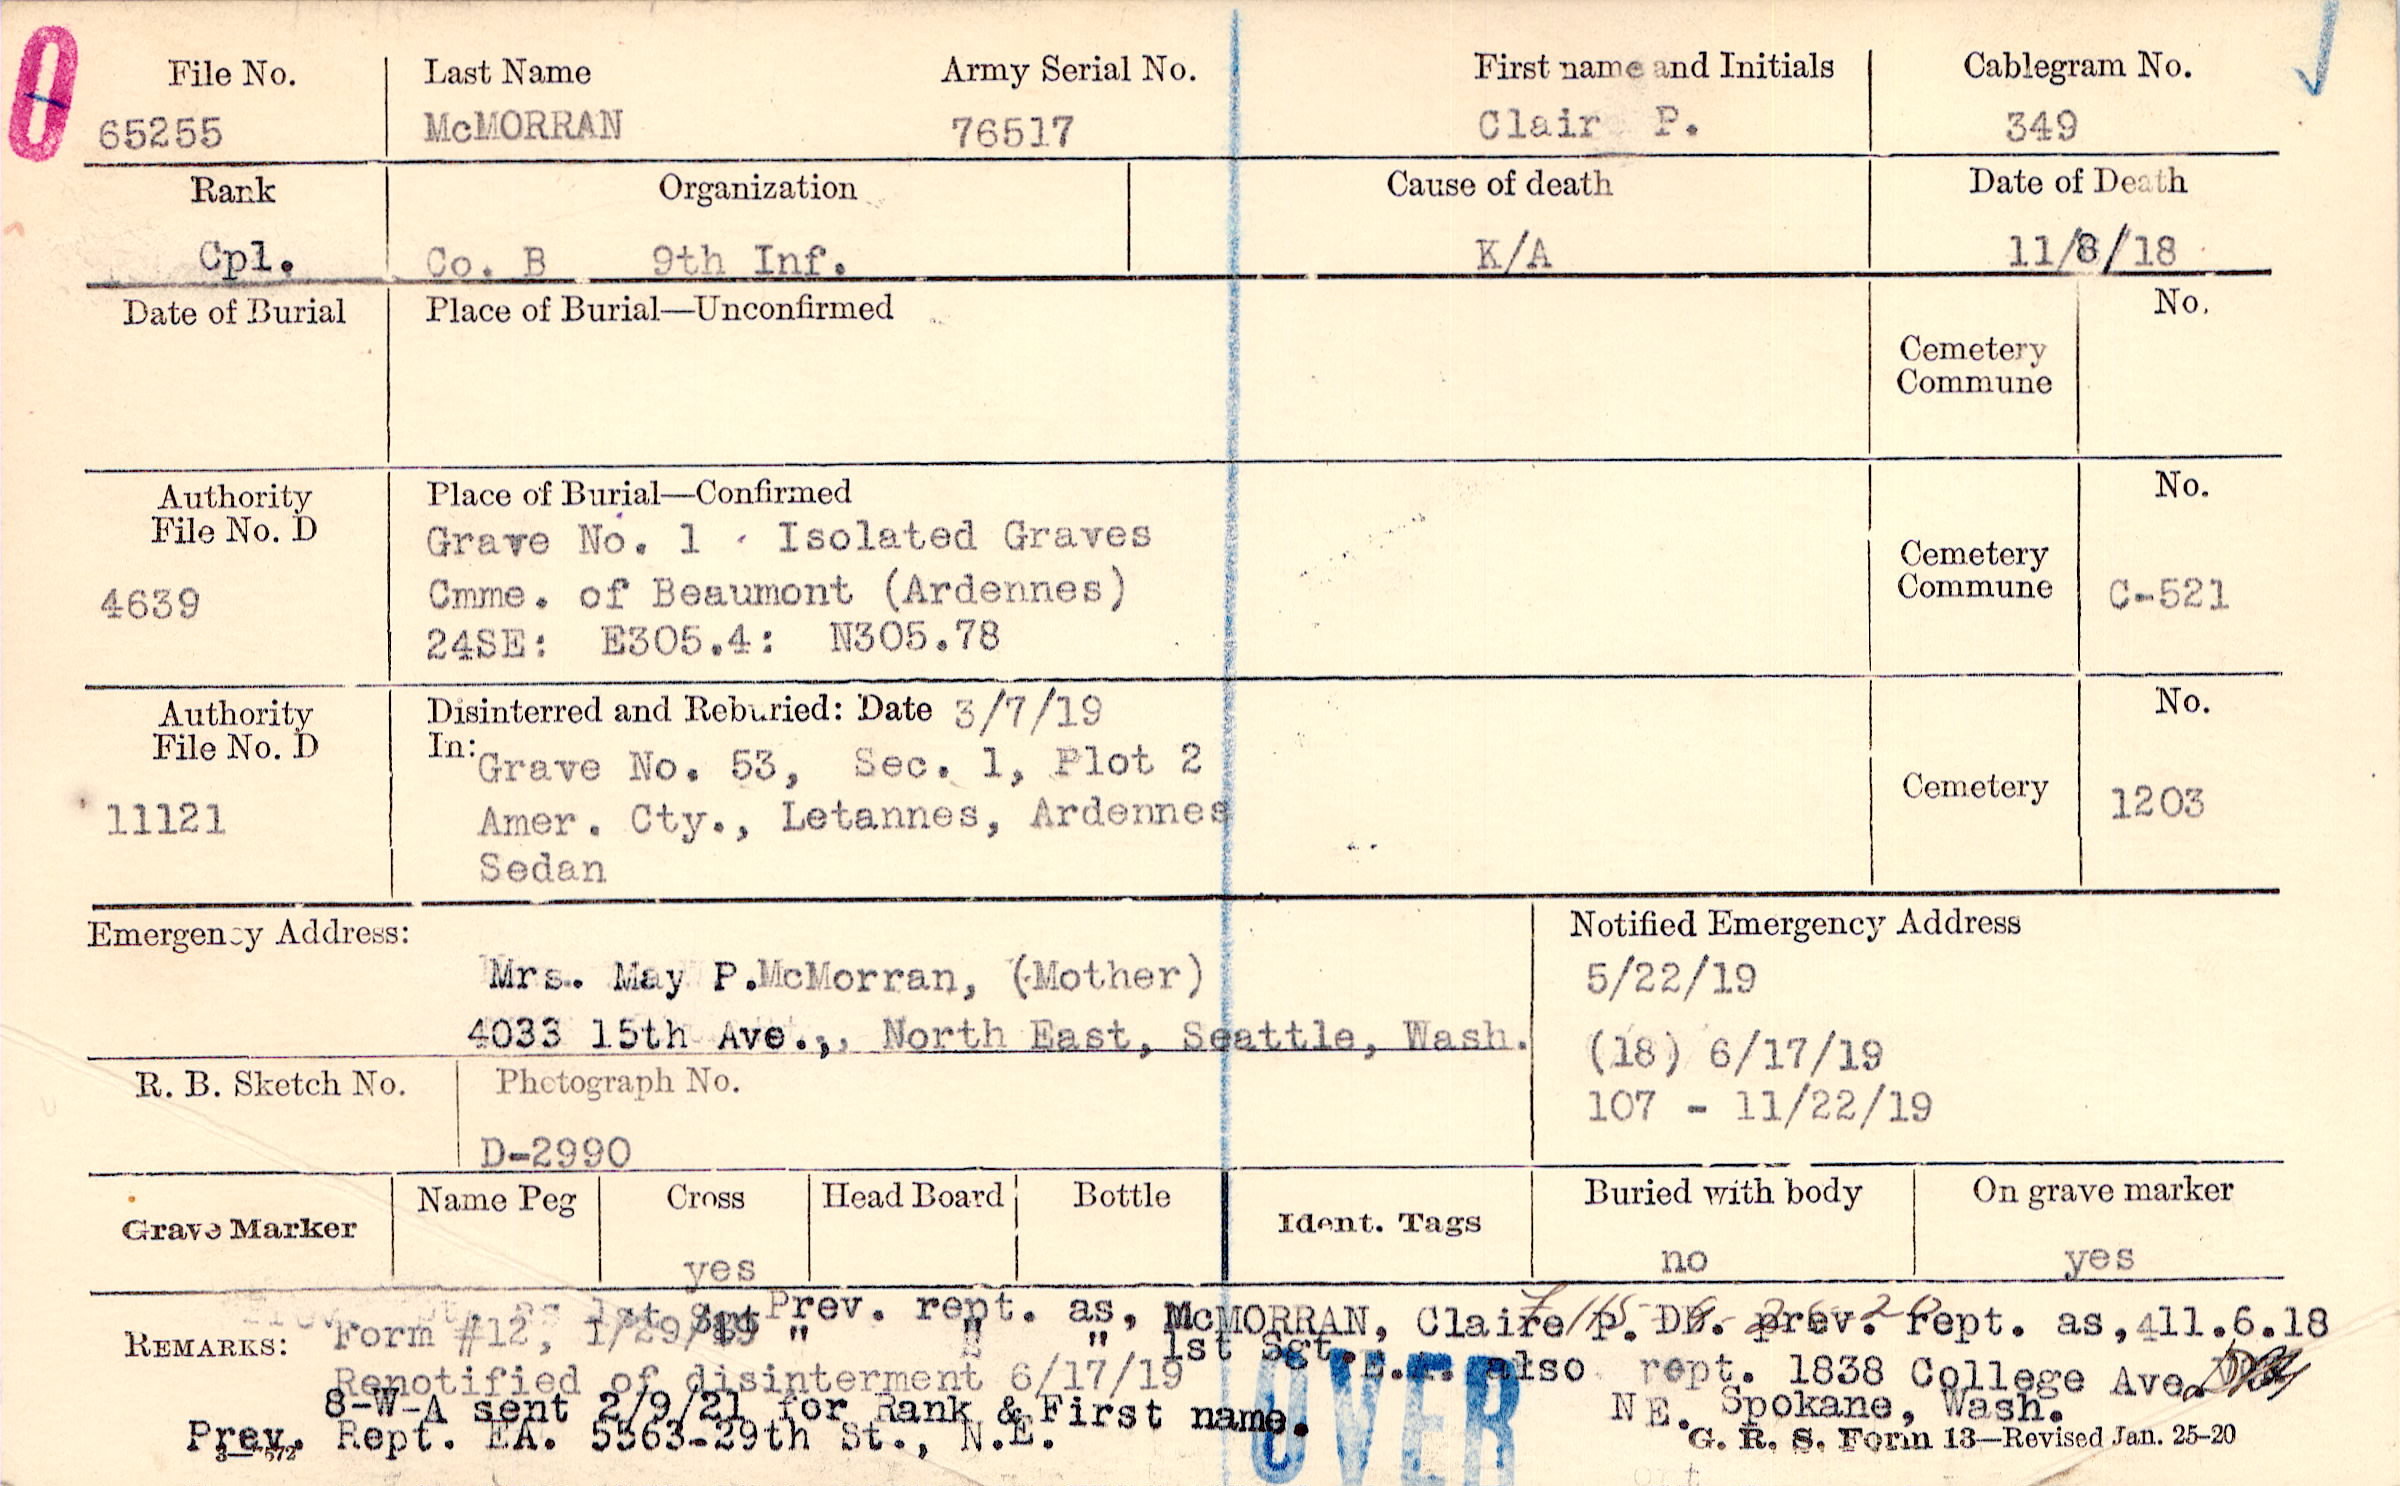 File No. Last Name Army Serial No. First name and Initials Cablegram No.
65255 McMORRAN 76517 Clair P. 349
Rank Organization Cause of death Date of Death
Cpl. Co. B 9th Inf. K/A 11/8/18
Date of Burial Place of Burial—Unconfirmed No.
Cemetery
Commune
Authority Place of Burial—Confirmed No.
File No. D
Grave No. 1 Isolated Graves
Cemetery
4639 Cmme. of Beaumont (Ardennes) Commune C-521
24SE: E305.4: N305.78
Authority Disinterred and Reburied: Date 3/7/19 No.
File No. D In:
Grave No. 53, Sec. 1, Plot 2
Cemetery
11121 Amer. Cty., Letannes, Ardennes 1203
Sedan
Emergency Address: Notified Emergency Address
Mrs. May P. McMorran, (Mother) 5/22/19
4033 15th Ave., North East, Seattle, Wash. (18) 6/17/19
R. B. Sketch No. Photograph No. 107 - 11/22/19
D-2990
Grave Marker Name Peg Cross Head Board Bottle Ident. Tags Buried with body On grave marker
yes no yes
Prev. rept. as, McMORRAN, Claire P. DD. prev. rept. as, 11.6.18
REMARKS: Form #12, 1/29/19 " " " 1st Sgt.
Renotified of disinterment 6/17/19 E.A. also rept. 1838 College Ave.
8-W-A sent 2/9/21 for Rank & First name. NE. Spokane, Wash.
Prev. Rept. EA. 5563-29th St., N.E.
OVER
G. R. S. Form 13—Revised Jan. 25-20